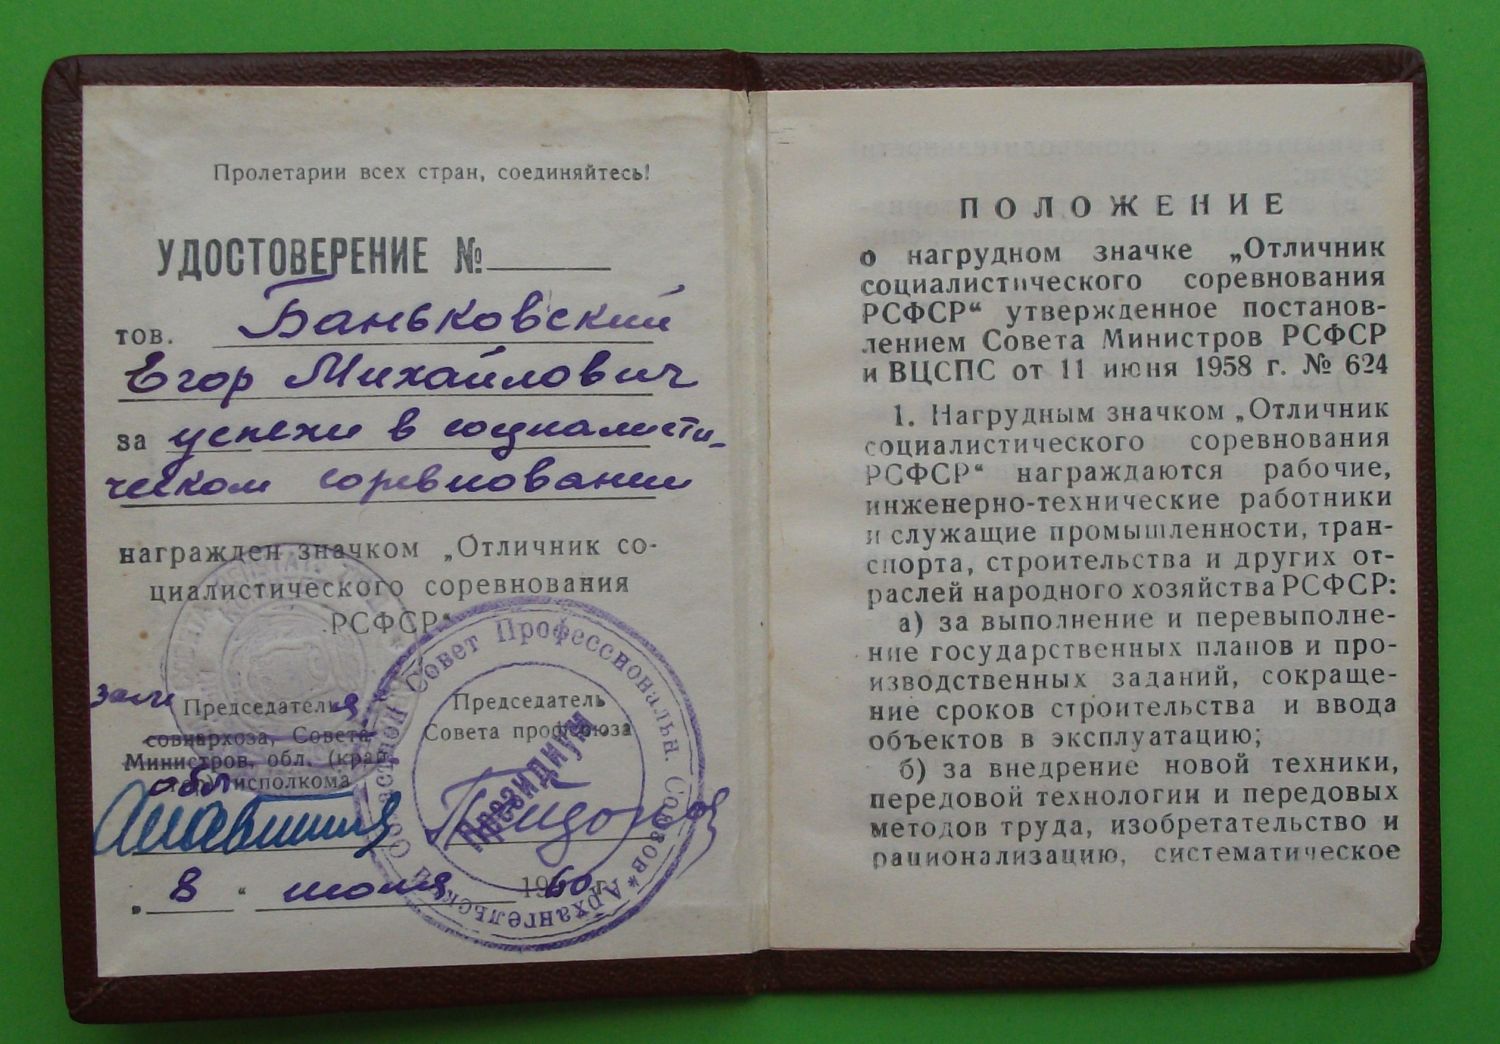 Пролетарии всех стран, соединяйтесь!
УДОСТОВЕРЕНИЕ №
тов. Баньковский
Егор Михайлович
за успехи в социалисти-
ческом соревновании
награжден значком „Отличник со-
циалистического соревнования
РСФСР“
зам Председателя
совнархоза, Совета
Министров, обл. (край
обл исполкома
Председатель
Совета профсоюза
„ 8 “ июля 1960 г.
Совет Профессиональн. Союзов * Архангельский Областной
Президиум
ПОЛОЖЕНИЕ
о нагрудном значке „Отличник
социалистического соревнования
РСФСР“ утвержденное постанов-
лением Совета Министров РСФСР
и ВЦСПС от 11 июня 1958 г. № 624
1. Нагрудным значком „Отличник
социалистического соревнования
РСФСР“ награждаются рабочие,
инженерно-технические работники
и служащие промышленности, тран-
спорта, строительства и других от-
раслей народного хозяйства РСФСР:
а) за выполнение и перевыполне-
ние государственных планов и про-
изводственных заданий, сокраще-
ние сроков строительства и ввода
объектов в эксплуатацию;
б) за внедрение новой техники,
передовой технологии и передовых
методов труда, изобретательство и
рационализацию, систематическое